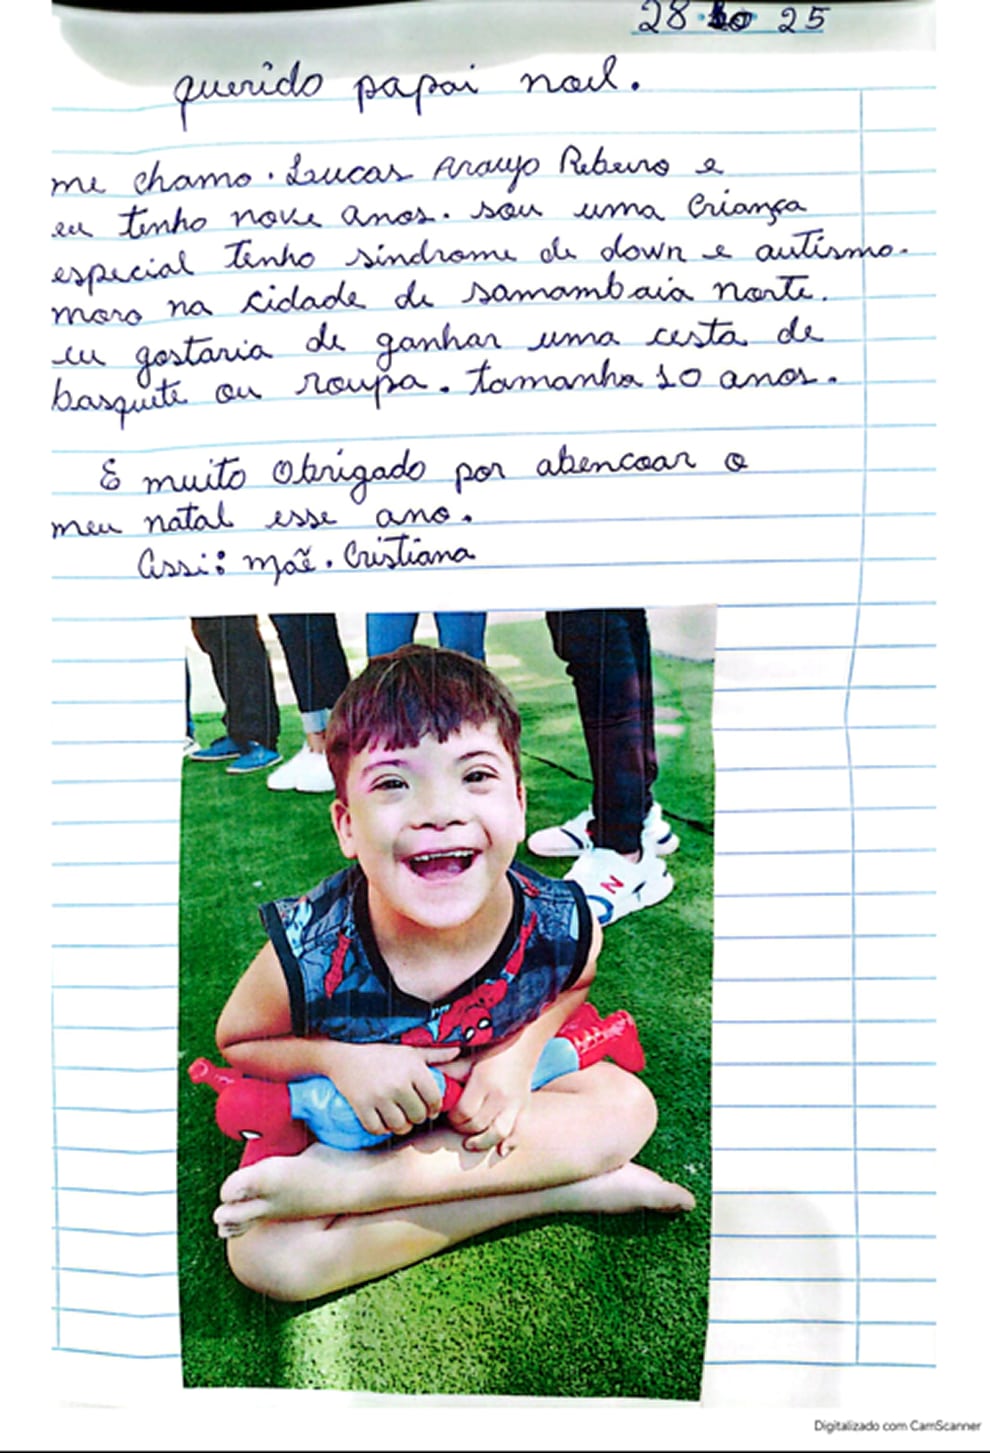 28 10 25
querido papai noel.
me chamo. Lucas Araujo Ribeiro e
eu tenho nove anos. sou uma criança
especial tenho síndrome de down e autismo.
moro na cidade de samambaia norte.
eu gostaria de ganhar uma cesta de
basquete ou roupa. tamanho 10 anos.
E muito Obrigado por abencoar o
meu natal esse ano.
Assi: Mãe. Cristiana
N
Digitalizado com CamScanner